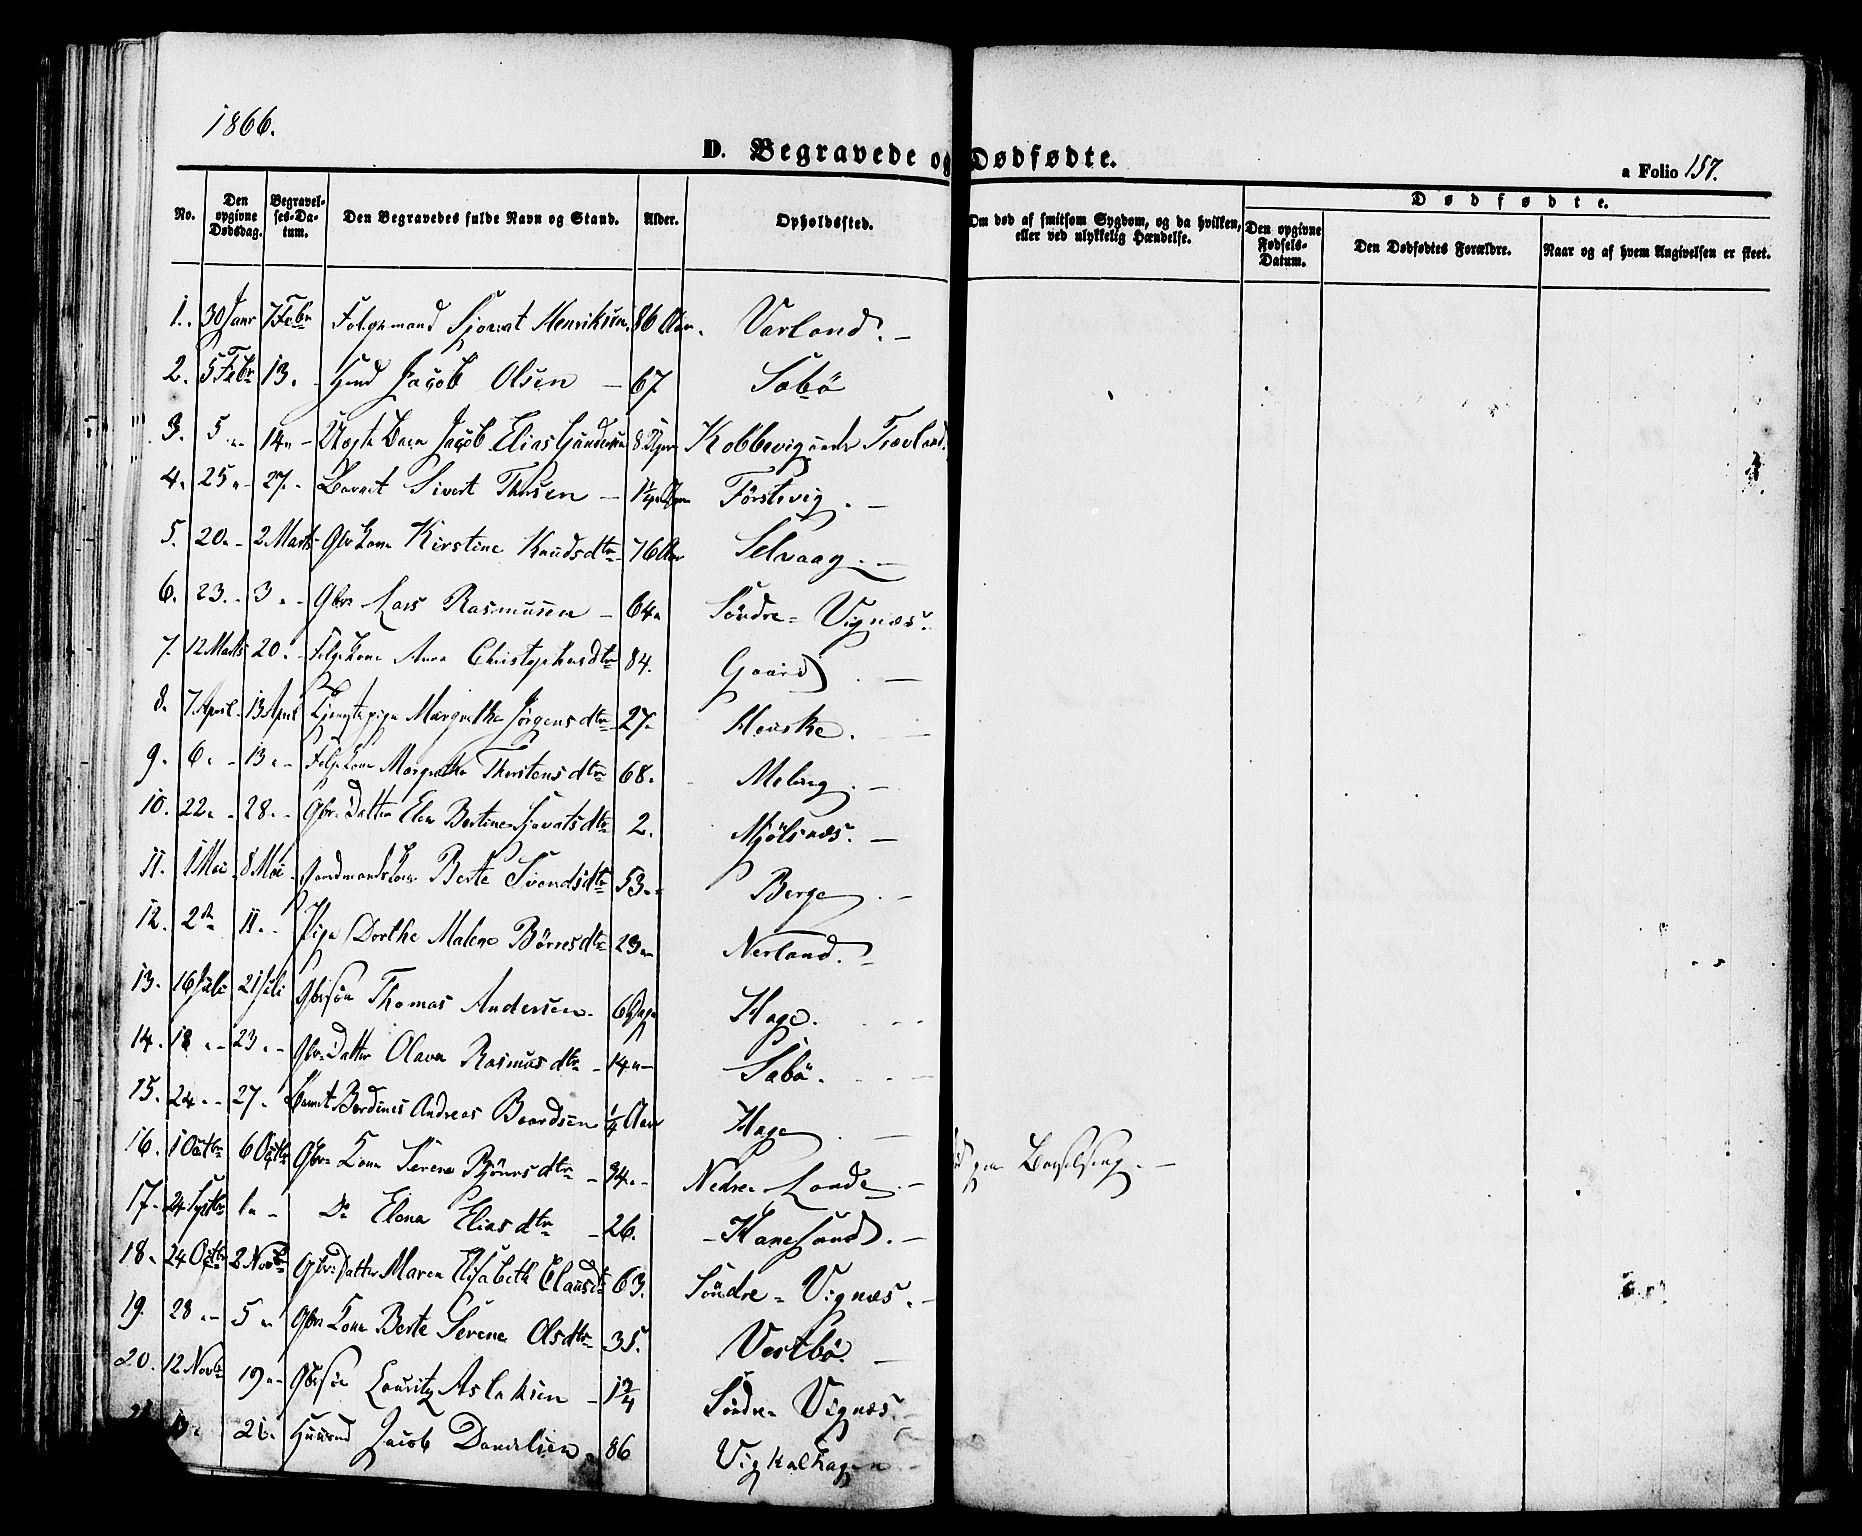 1866.
D. Begravede og Dødfødte.
a Folio 157.
No. Den opgivne Dødsdag. Begravelses-Datum. Den Begravedes fulde Navn og Stand. Alder. Opholdssted. Om død af smitsom Sygdom, og da hvilken, eller ved ulykkelig Hændelse. Dødfødte. Den opgivne Fødsels-Datum. Den Dødfødtes Forældre. Naar og af hvem Angivelsen er skeet.
1. 30 Janr 7 Febr Folgemand Sjovat Henriksen 86 Aar. Varland. -
2. 5 Febr 13. - Hmd Jacob Olsen - 67. Sabö
3. 5 " 14 " - Uægte Barn Jacob Elias Gundersen 8 Uger Kobbevig Trævland.
4. 25 " - 27. - Barnet Sivert Thorsen - Förstevig. -
5. 20. - 2 Marts Gbr Kone Kirstine Knudsdtr 76 Aar Selvaag. -
6. 23. - 3 . - Gbr. Lars Rasmusen - 64 " Söndre - Vignæs.
7. 12 Marts 20. - Folgekone Anna Christophersdtr 84. Gaard. -
8. 7 April 13 April Tjenestepige Margrethe Jörgensdtr 27. Heuske. -
9. 6. - 13. - Folgekone Margrethe Thorstensdtr 68. Meling. -
10. 22. - 28. - Gbr. Datter Elen Bertine Sjovatsdtr 2. Mjölsnæs. -
11. 1 Mai 8 Mai Kone Berte Svendsdtr 53. - Berge. -
12. 2d 11. - Pige Dorthe Malene Börresdtr 23 " Nerland. -
13. 16 Juli 21 Juli Gbr sön Thomas Andersen. 6 Dage Hage.
14. 18 . - 23 . - Gbr. Datter Olava Rasmusdtr - 14 " - Sabö.
15. 24 . - 27. Barnet Berdines Andreas Baardsen 1/4 Aar Hage. -
16. 1 Octbr 6 Octbr Gbr. Kone Serene Björnsdtr - 34. - Nedre Lande. - Barselseng. -
17. 24 Septbr 1 " - Do Elena Eliasdtr - 26. - Hanesund. -
18. 24 Octbr 2 Novbr Gbr. Datter Maren Elisabeth Clausdtr 63. Söndre - Vignæs. -
19. 28 . - 5 " Gbr Kone Berte Serene Olsdtr 35. Vestbö. -
20. 12 Novbr 19 " - Gbr sön Lauritz Aslaksen - 1 3/4 Söndre Vignæs. -
21. Huusmd Jacob Danielsen 86 Vigkalhagen -